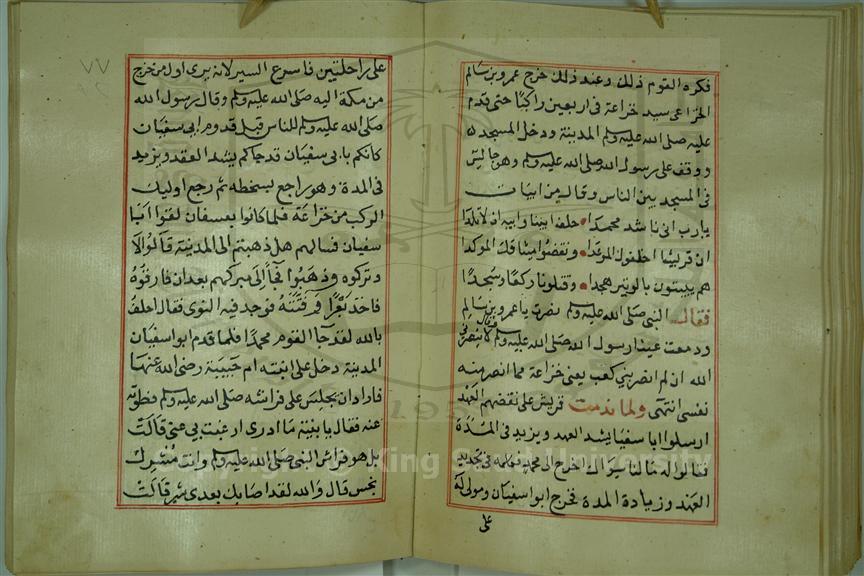 فكره القوم ذلك وعند ذلك خرج عمرو بن سالم
الخزاعي سيد خزاعة في اربعين راكبًا حتى قدم
عليه صلى الله عليه وسلم المدينة ودخل المسجد
ووقف على رسول الله صلى الله عليه وسلم وهو جالس
في المسجد بين الناس وقال من ابيات
يارب اني ناشد محمدا حلف ابينا وابيه الاتلدا
ان قريشا اخلفوك الموعدا ونقضوا ميثاقك الموكدا
هم بيتون بالوتير هجدا وقتلونا ركعا وسجدا
فقال النبي صلى الله عليه وسلم نصرت يا عمرو بن سالم
ودمعت عينا رسول الله صلى الله عليه وسلم فقال لا ينصرني
الله ان لم انصر بني كعب يعني خزاعة مما انصر منه
نفسي انتهى ولما ندمت قريش على نقضهم العهد
ارسلوا ابا سفيان ليشد العهد ويزيد في المدة
فقالوا له مالنا سواك اخرج الى محمد فكلمه في تجديد
العهد وزيادة المدة فخرج ابو سفيان ومولى له
على
٧٧
على راحلتين فاسرع السير لانه يرى اول من خرج
من مكة اليه صلى الله عليه وسلم وقال رسول الله
صلى الله عليه وسلم للناس قبل قدوم ابي سفيان
كانكم بابي سفيان قد جاكم يشد العقد ويزيد
في المدة وهو راجع بسخطه ثم رجع اوليك
الركب من خزاعة فلما كانوا بعسفان لقوا ابا
سفيان فسالهم هل ذهبتم الى المدينة قالوا لا
وتركوه وذهبوا فجاء الى مبركهم بعد ان فارقوه
فاخذ بعرا وفتته فوجد فيه النوى فقال احلف
بالله لقد جا القوم محمدا فلما قدم ابو سفيان
المدينة دخل على ابنته ام حبيبة رضى الله عنها
فاراد ان يجلس على فراشه صلى الله عليه وسلم فطوته
عنه فقال يا بنية ما ادرى ارغبت بي عني قالت
بل هو فراش النبي صلى الله عليه وسلم وانت مشرك
نجس قال والله لقد اصابك بعدى شر قالت
King Saud University